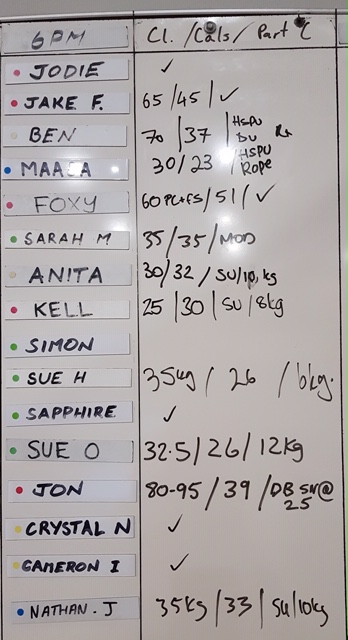 6PM Cl. / Cals / Part C
JODIE ✓
JAKE F. 65 / 45 / ✓
BEN 70 / 37 / HSPU DU Rx
MAASA 30 / 23 / HSPU Rope
FOXY 60 PC+FS / 51 / ✓
SARAH M 35 / 35 / MOD
ANITA 30 / 32 / SU / 10 kg
KELL 25 / 30 / SU / 8kg
SIMON
SUE H 35kg / 26 / 6kg.
SAPPHIRE ✓
SUE O 32.5 / 26 / 12kg
JON 80-95 / 39 / DB SN @ 25
CRYSTAL N ✓
CAMERON I ✓
NATHAN. J 35kg / 33 / SU / 10kg